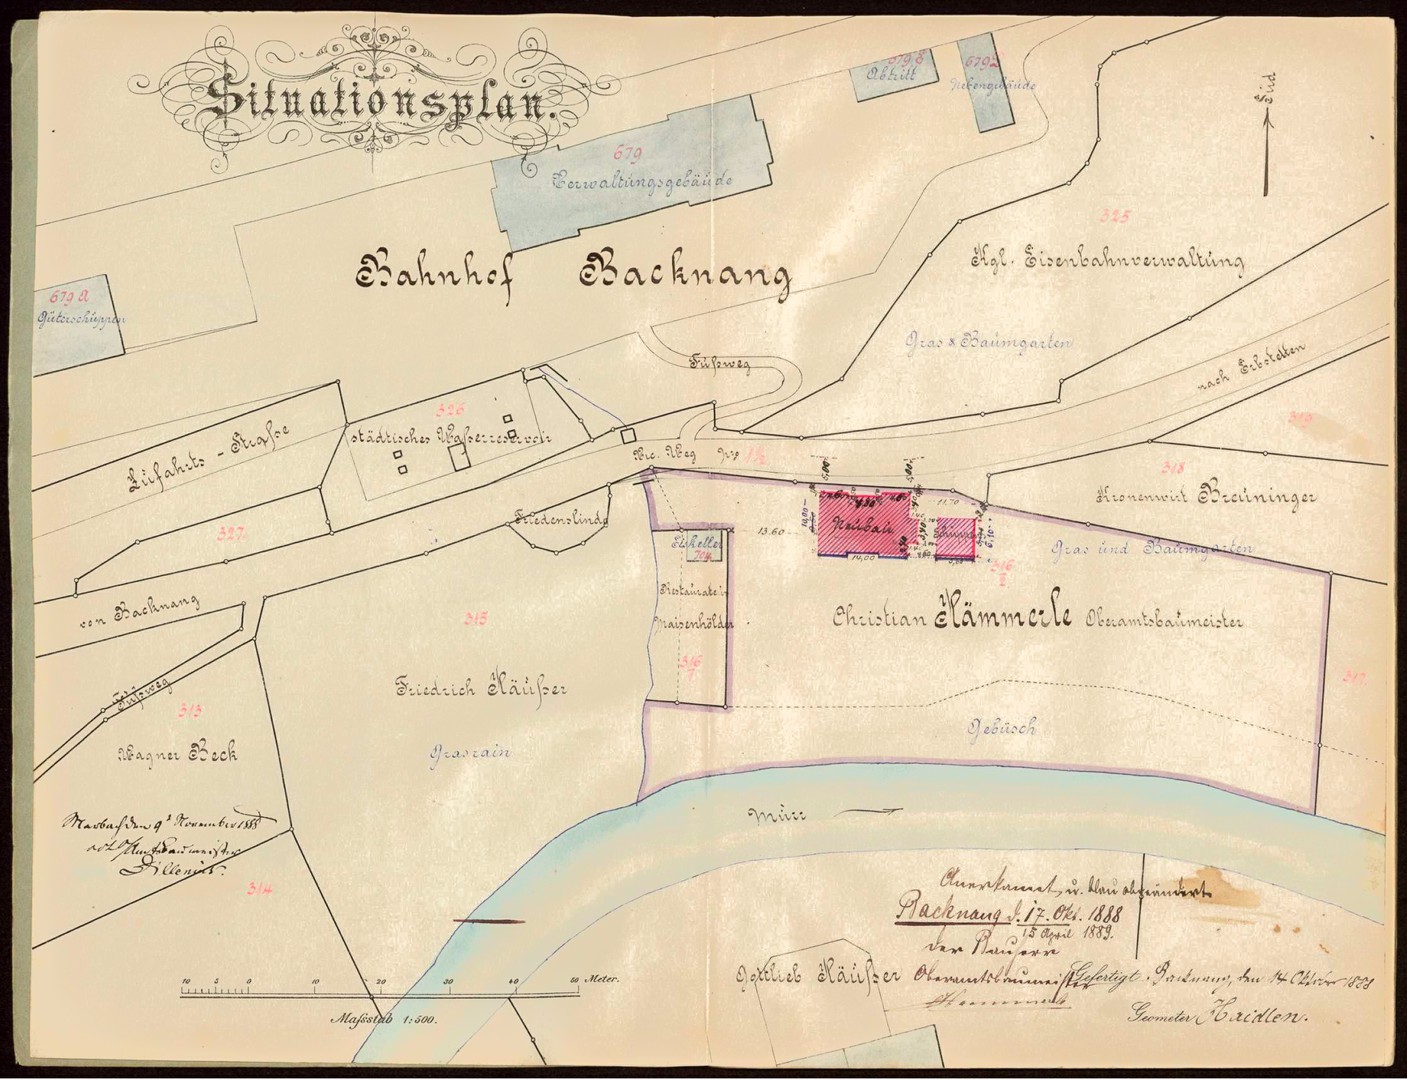 Situationsplan.
679 B
Abtritt
679 2
Nebengebäude
Süd
679
Verwaltungsgebäude
325
Kgl. Eisenbahnverwaltung
Bahnhof Backnang
679 a
Güterschuppen
Gras & Baumgarten
Fußweg
nach Erbstetten
326
städtisches Wasserreservoir
Zufahrts-Straße
319
Vic. Weg No
1/2
318
Kronenwirt Breuninger
327
Friedenslinde
5,00
5,00
11.70
13.60
Neubau
14,00
Eiskeller
70a
Gras und Baumgarten
316
2
von Backnang
315
Restaurateur
Maisenhölder
Christian Hämmerle Oberamtsbaumeister
316
1
317
Friedrich Häußer
Fußweg
313
Wagner Beck
Grasrain
Gebüsch
Murr
Marbach den 9t November 1888
Oberamtsbaumeister
Dillenius.
314
Anerkannt, u. blau abgeändert
Backnang d. 17. Okt. 1888
15 April 1889.
der Bauherr
Oberamtsbaumeister
Gottlieb Häußer
Gefertigt, Backnang, den 14 Oktober 1888
Geometer Haidlen.
10 5 0 10 20 30 40 50 Meter.
Maßstab 1:500.